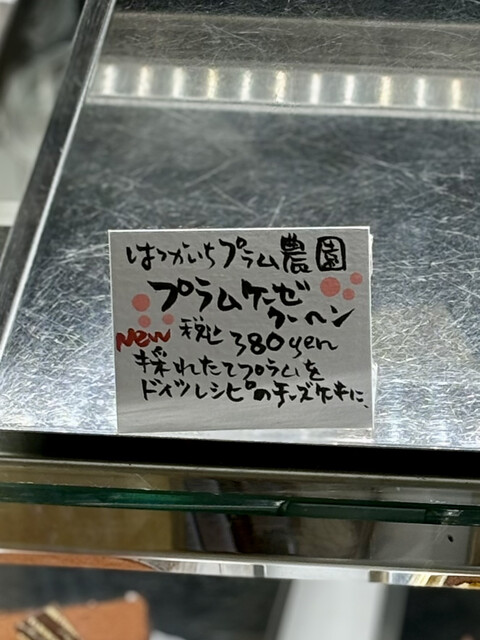 はつかいちプラム農園
プラムケーゼ
クーヘン
New 税込 380yen
採れたてプラムを
ドイツレシピのチーズケーキに、